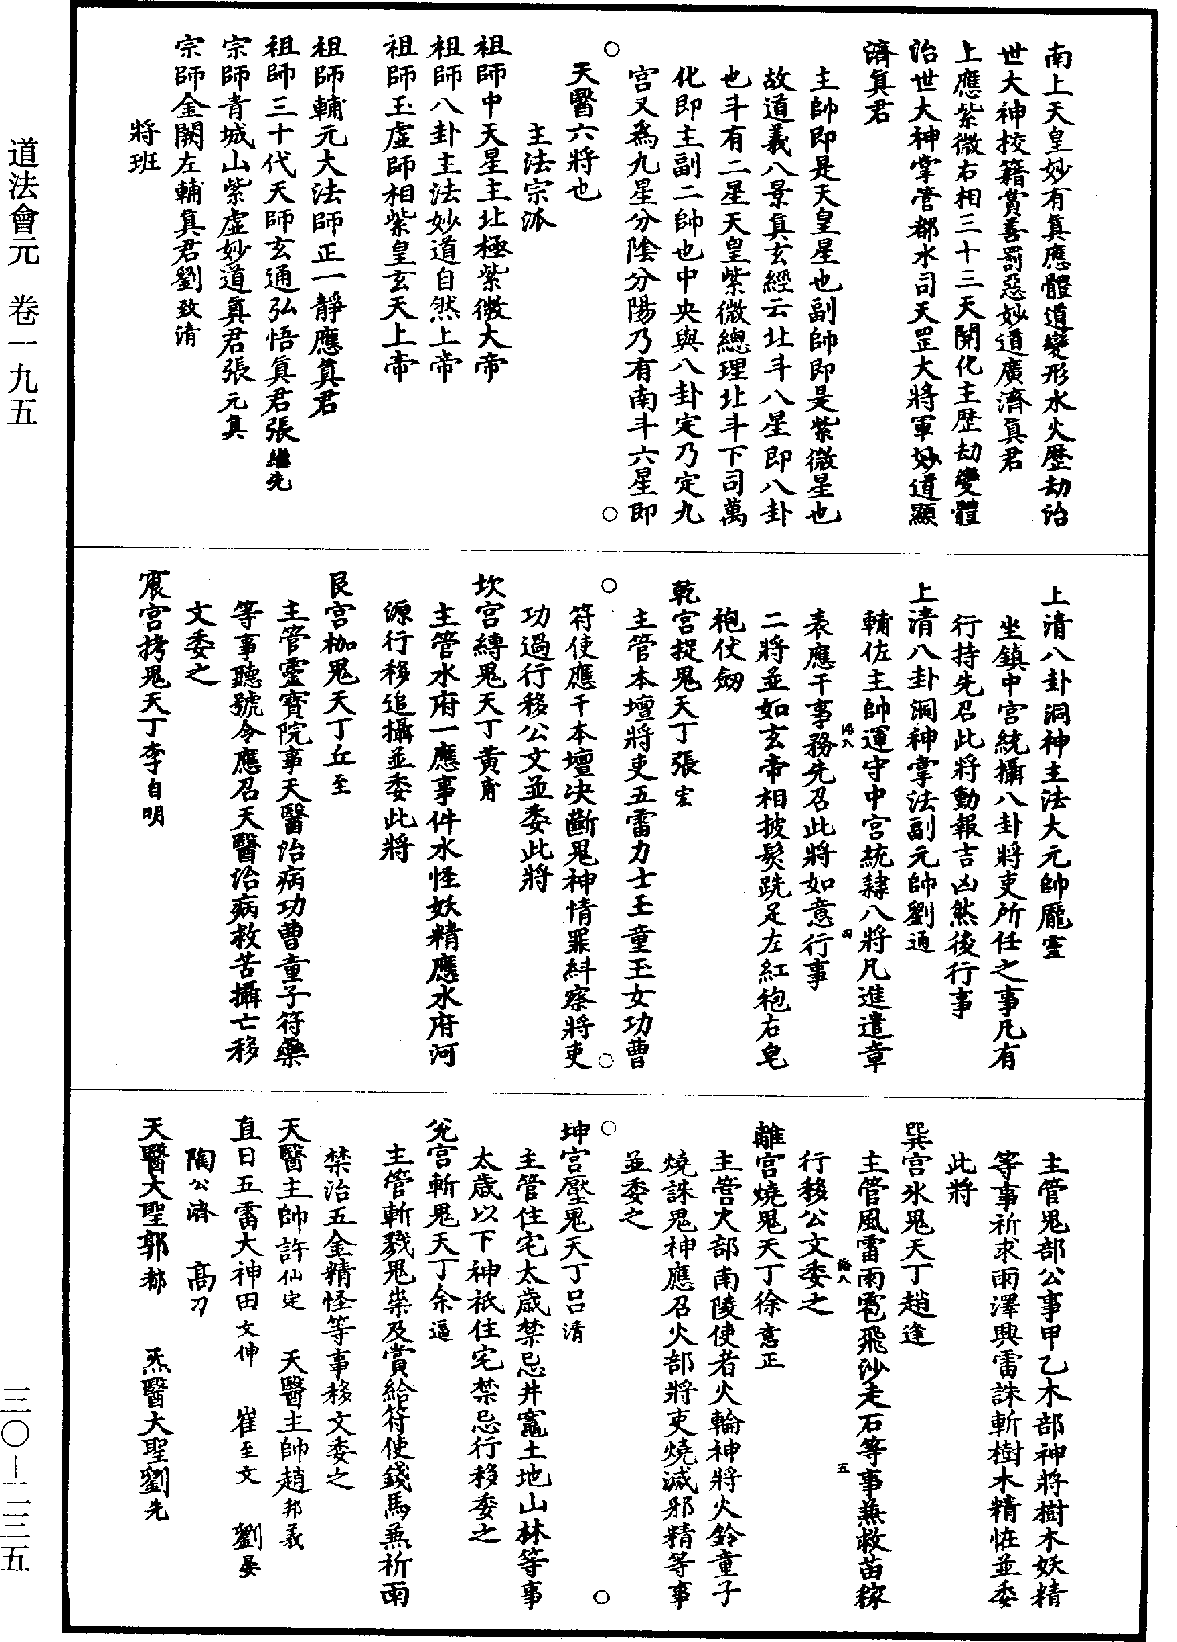 南上天皇妙有真應體道變形水火歷劫治
世大神校籍賞善罰惡妙道廣濟真君
上應紫微右相三十三天開化主歷劫變體
治世大神掌管都水司天罡大將軍妙道顯
濟真君
主帥即是天皇星也副帥即是紫微星也
故道義八景真玄經云北斗八星即八卦
也斗有二星天皇紫微總理北斗下司萬
化即主副二帥也中央與八卦定乃定九
宮又為九星分陰分陽乃有南斗六星即
天醫六將也
主法宗派
祖師中天星主北極紫微大帝
祖師八卦主法妙道自然上帝
祖師玉虛師相紫皇玄天上帝
祖師輔元大法師正一靜應真君
祖師三十代天師玄通弘悟真君張繼先
宗師青城山紫虛妙道真君張元真
宗師金闕左輔真君劉致清
將班
上清八卦洞神主法大元帥龐靈
坐鎮中宮統攝八卦將吏所任之事凡有
行持先召此將動報吉凶然後行事
上清八卦洞神掌法副元帥劉通
輔佐主帥運守中宮統隸八將凡進遣章
表應干事務先召此將如意行事
二將並如玄帝相披髮跣足左紅袍右皂
袍仗劒
乾宮捉鬼天丁張宏
主管本壇將吏五雷力士玉童玉女功曹
符使應干本壇決斷鬼神情罪糾察將吏
功過行移公文並委此將
坎宮縛鬼天丁黃甯
主管水府一應事件水怪妖精應水府河
源行移追攝並委此將
艮宮枷鬼天丁丘至
主管靈寶院事天醫治病功曹童子符藥
等事聽號令應召天醫治病救苦攝亡移
文委之
震宮拷鬼天丁李自明
主管鬼部公事甲乙木部神將樹木妖精
等事祈求雨澤興雷誅斬樹木精怪並委
此將
巽宮氷鬼天丁趙逢
主管風雷雨雹飛沙走石等事兼救苗稼
行移公文委之
離宮燒鬼天丁徐意正
主管火部南陵使者火輪神將火鈴童子
燒誅鬼神應召火部將吏燒滅邪精等事
並委之
坤宮壓鬼天丁呂清
主管住宅太歲禁忌井竈土地山林等事
太歲以下神祇住宅禁忌行移委之
兌宮斬鬼天丁余逼
主管斬戮鬼祟及賞給符使錢馬兼祈雨
禁治五金精怪等事移文委之
天醫主帥許仙定　天醫主帥趙邦義
直日五雷大神田文伸　崔至文　劉晏
陶公濟　高刀
天醫大聖郭都　炁醫大聖劉先
道法會元　卷一九五
三〇—二三五